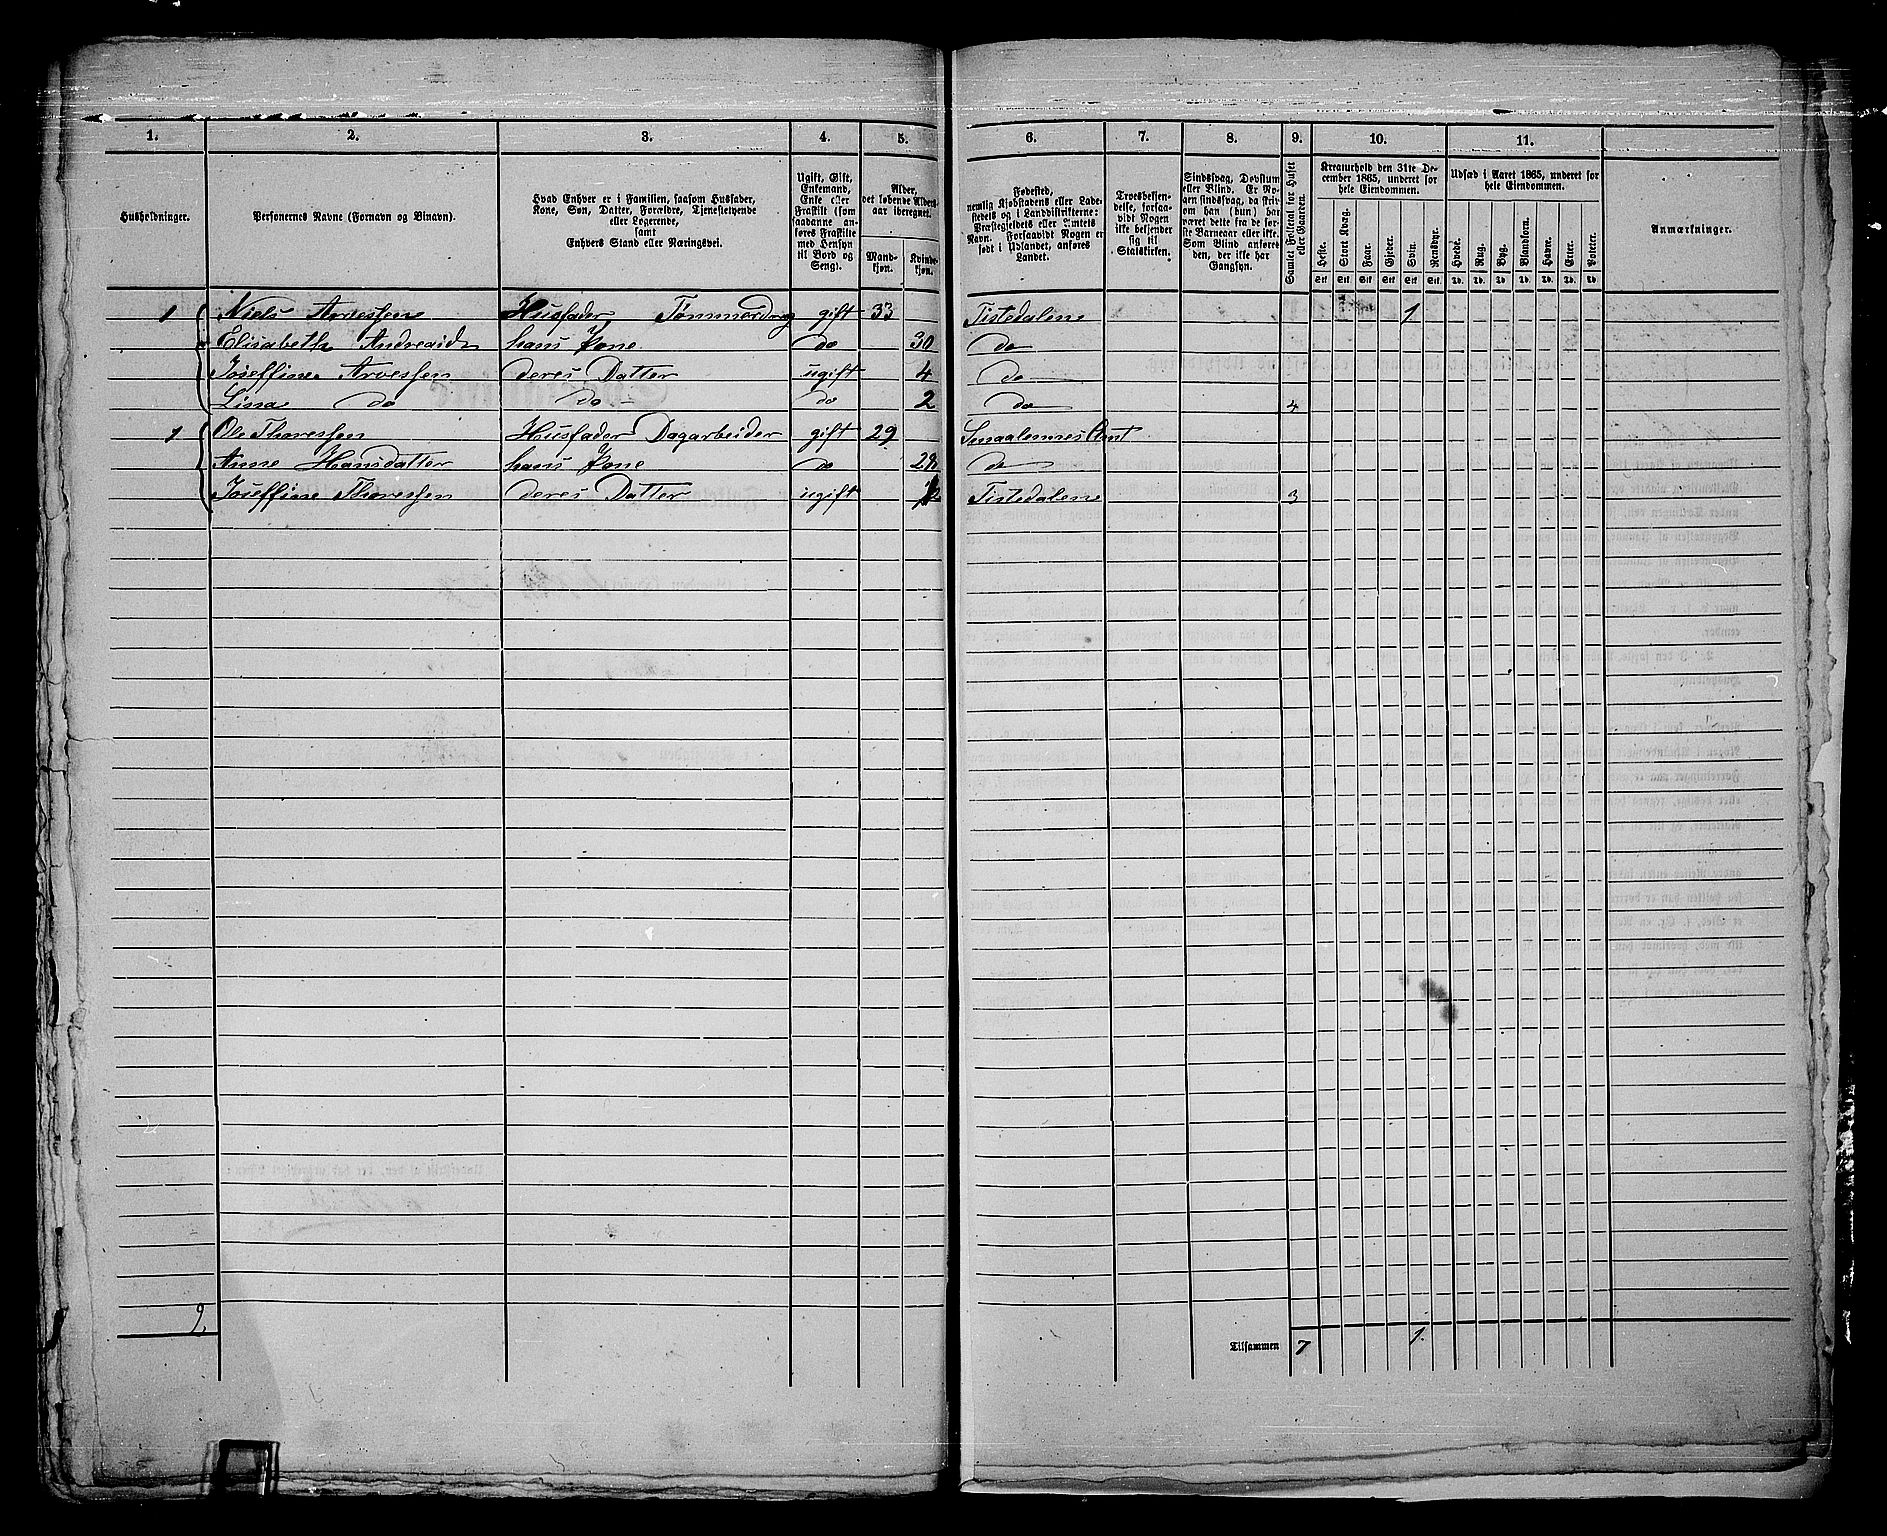 1. 2. 3. 4. 5. 6. 7. 8. 9. 10. 11.
Husholdninger.
Personernes Navne (Fornavn og Binavn).
Hvad Enhver er i Familien, saasom Husfader,
Kone, Søn, Datter, Forældre, Tjenestetyende
eller Logerende,
samt
Enhvers Stand eller Næringsvei.
Ugift, Gift,
Enkemand,
Enke eller
Fraskilt (som
saadanne an-
føres Fraskilte
med Hensyn
til Bord og
Seng).
Alder,
det løbende Alders-
aar iberegnet.
Mand-
kjøn.
Kvinde-
kjøn.
Fødested,
nemlig Kjøbstadens eller Lade-
stedets og i Landdistrikterne:
Præstegjeldets eller Amtets
Navn. Forsaavidt Nogen er
født i Udlandet, anføres
Landet.
Troesbekjen-
delse, forsaa-
vidt Nogen
ikke bekjender
sig til
Statskirken.
Sindssvag, Døvstum
eller Blind. Er No-
gen sindssvag, da skriv
om han (hun) har
været dette fra de før-
ste Barneaar eller ikke.
Som Blind anføres
den, der ikke har
Gangsyn.
Samlet Folketal for Huset
eller Gaarden.
Kreaturhold den 31te De-
cember 1865, underet for
hele Eiendommen.
Heste. Stort Kvæg. Faar. Gjeder. Sviin. Rensdyr.
Stk. Stk. Stk. Stk. Stk. Stk.
Udsæd i Aaret 1865, underet for
hele Eiendommen.
Hvede. Rug. Byg. Blandkorn. Havre. Erter. Poteter.
Td. Td. Td. Td. Td. Td. Td.
Anmærkninger.
1 Niels Arvessen Husfader Tømmerdrag gift 33 Tistedalen 1
Elisabeth Andreasd hans Kone do 30 do
Joseffine Arvessen deres Datter ugift 4 do
Lina do do do 2 do 4
1 Ole Thoressen Husfader Dagarbeider gift 29 Smaalennes Amt
Anne Hansdatter hans Kone do do
Joseffine Thoressen deres Datter ugift Tistedalen 3
2 Tilsammen 7 1.